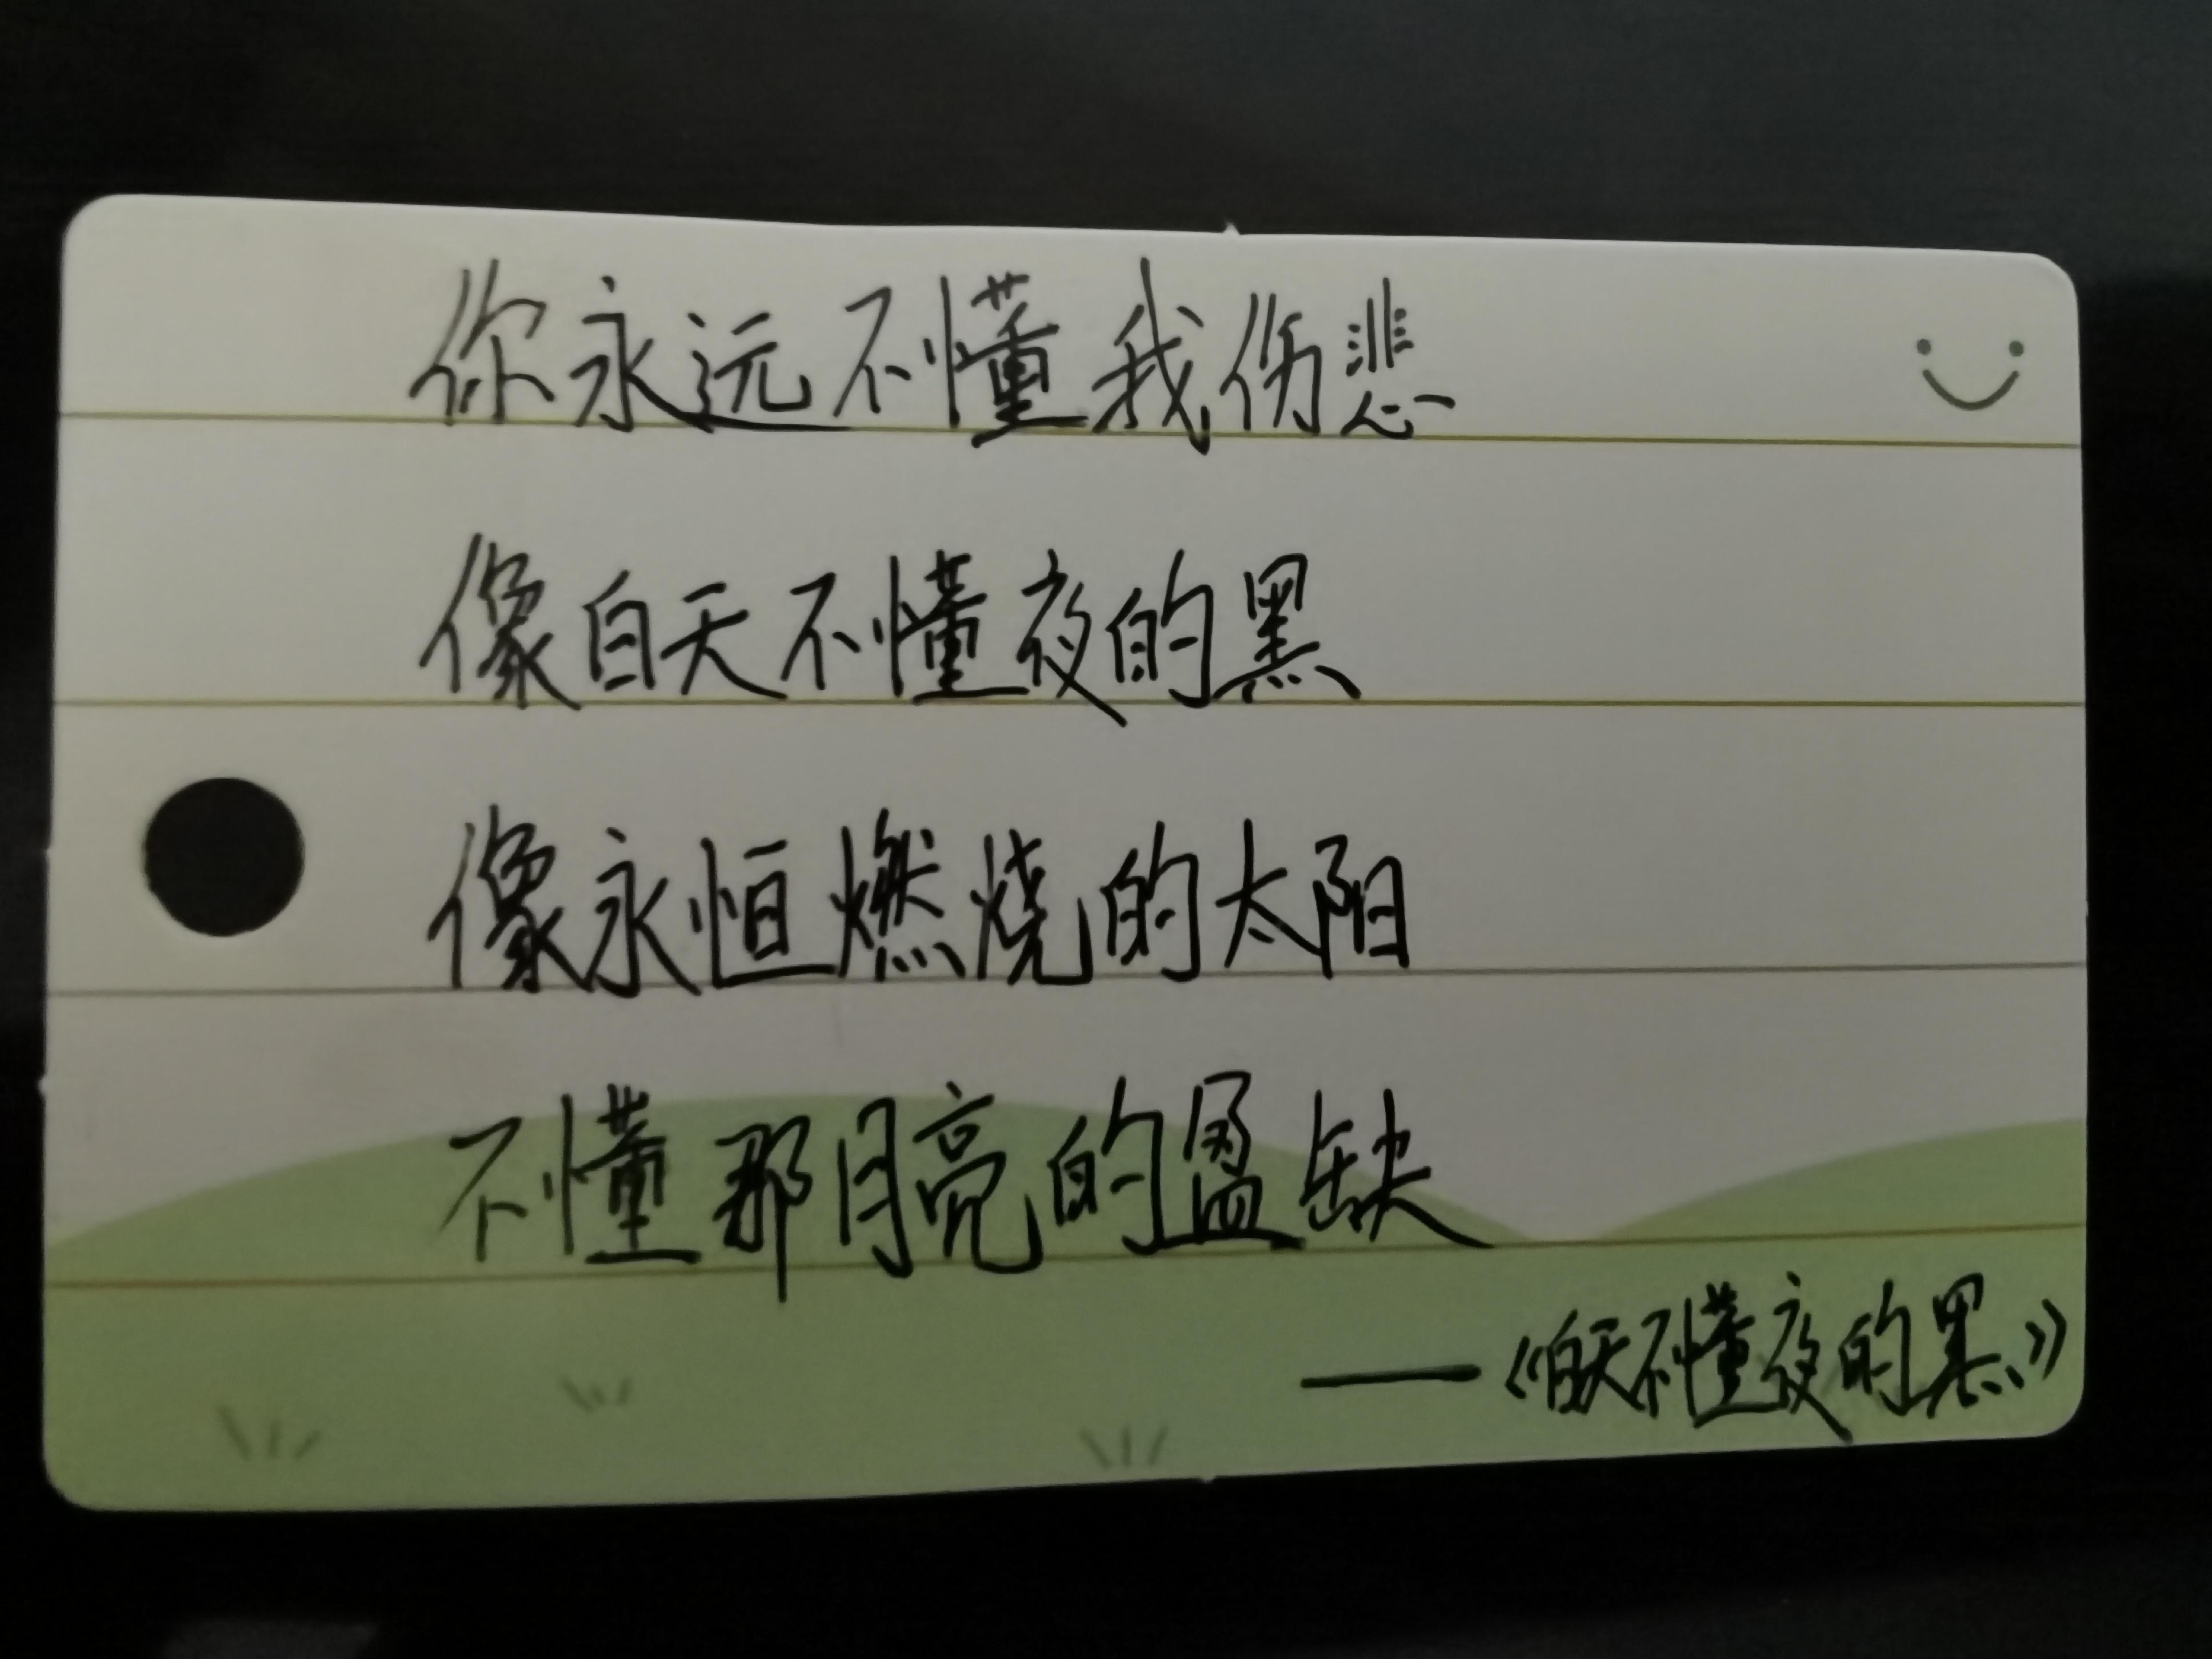 你永远不懂我伤悲
像白天不懂夜的黑
像永恒燃烧的太阳
不懂那月亮的盈缺
——《白天不懂夜的黑》